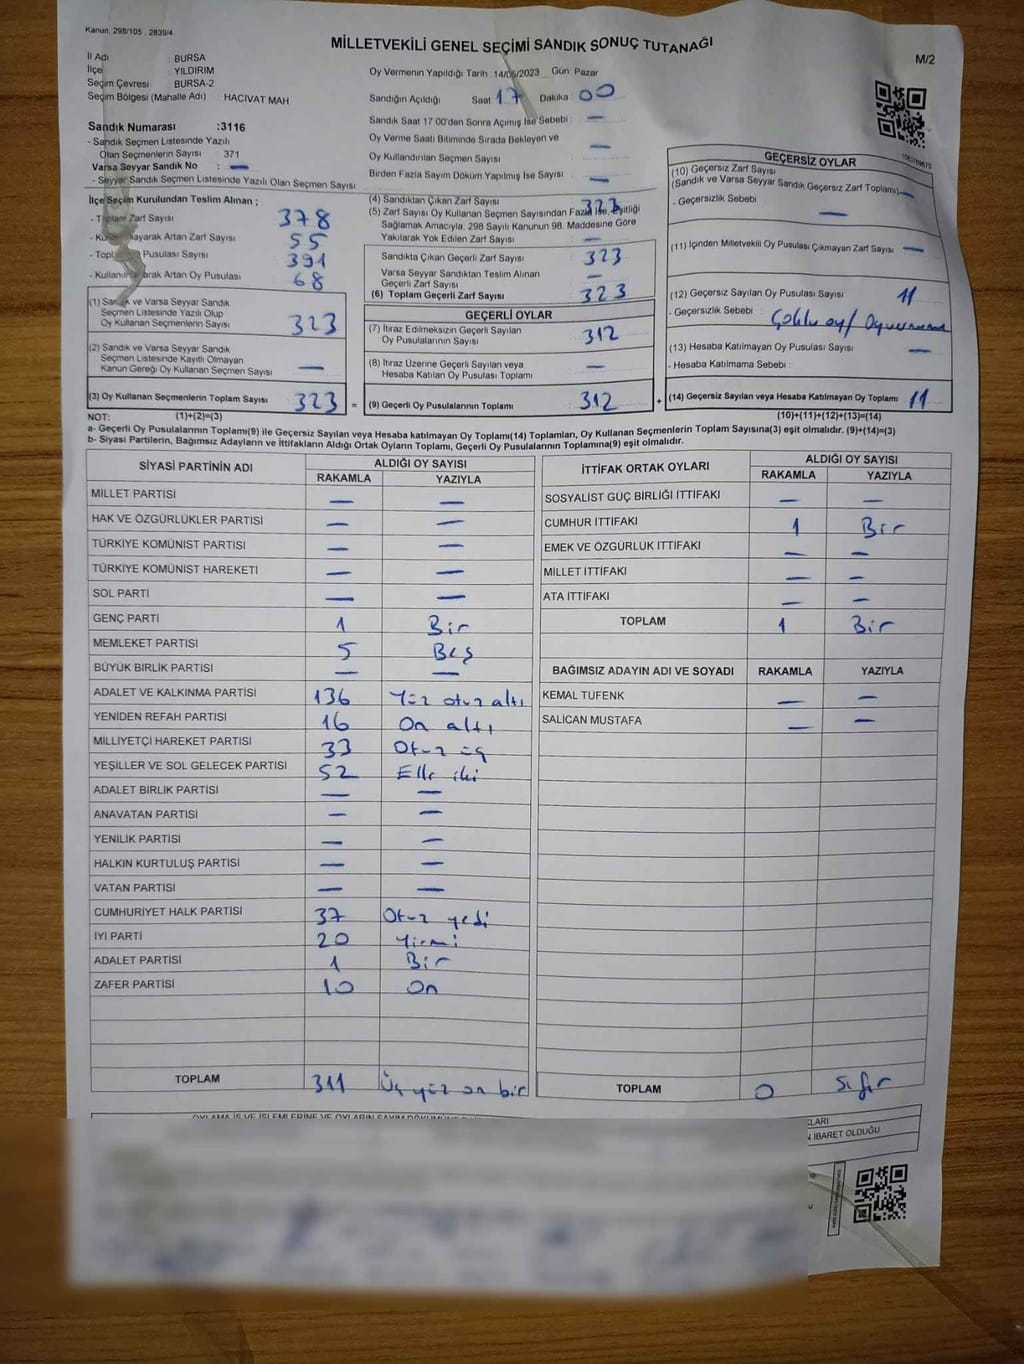 Kanun, 298/105 , 2839/4
MİLLETVEKİLİ GENEL SEÇİMİ SANDIK SONUÇ TUTANAĞI
M/2
İl Adı : BURSA
İlçe : YILDIRIM
Seçim Çevresi : BURSA-2
Seçim Bölgesi (Mahalle Adı) : HACİVAT MAH.
Sandık Numarası :3116
- Sandık Seçmen Listesinde Yazılı
Olan Seçmenlerin Sayısı : 371
Varsa Seyyar Sandık No : —
- Seyyar Sandık Seçmen Listesinde Yazılı Olan Seçmen Sayısı :
Oy Vermenin Yapıldığı Tarih : 14/05/2023 Gün: Pazar
Sandığın Açıldığı Saat 17 Dakika : 00
Sandık Saat 17.00'den Sonra Açılmış İse Sebebi : —
Oy Verme Saati Bitiminde Sırada Bekleyen ve
Oy Kullandırılan Seçmen Sayısı : —
Birden Fazla Sayım Döküm Yapılmış İse Sayısı : —
İlçe Seçim Kurulundan Teslim Alınan ;
- Toplam Zarf Sayısı : 378
- Kullanılmayarak Artan Zarf Sayısı : 55
- Toplam Oy Pusulası Sayısı : 391
- Kullanılmayarak Artan Oy Pusulası : 68
(1) Sandık ve Varsa Seyyar Sandık
Seçmen Listesinde Yazılı Olup
Oy Kullanan Seçmenlerin Sayısı : 323
(2) Sandık ve Varsa Seyyar Sandık
Seçmen Listesinde Kayıtlı Olmayan
Kanun Gereği Oy Kullanan Seçmen Sayısı : —
(3) Oy Kullanan Seçmenlerin Toplam Sayısı 323 =
(4) Sandıktan Çıkan Zarf Sayısı : 323
(5) Zarf Sayısı Oy Kullanan Seçmen Sayısından Fazla İse, Eşitliği
Sağlamak Amacıyla, 298 Sayılı Kanunun 98. Maddesine Göre
Yakılarak Yok Edilen Zarf Sayısı : —
Sandıkta Çıkan Geçerli Zarf Sayısı : 323
Varsa Seyyar Sandıktan Teslim Alınan
Geçerli Zarf Sayısı : —
(6) Toplam Geçerli Zarf Sayısı : 323
GEÇERLİ OYLAR
(7) İtiraz Edilmeksizin Geçerli Sayılan
Oy Pusulalarının Sayısı : 312
(8) İtiraz Üzerine Geçerli Sayılan veya
Hesaba Katılan Oy Pusulası Toplamı : —
(9) Geçerli Oy Pusulalarının Toplamı : 312 +
GEÇERSİZ OYLAR
(10) Geçersiz Zarf Sayısı
(Sandık ve Varsa Seyyar Sandık Geçersiz Zarf Toplamı) —
- Geçersizlik Sebebi : —
(11) İçinden Milletvekili Oy Pusulası Çıkmayan Zarf Sayısı : —
(12) Geçersiz Sayılan Oy Pusulası Sayısı : 11
- Geçersizlik Sebebi : Çoklu oy/
(13) Hesaba Katılmayan Oy Pusulası Sayısı : —
- Hesaba Katılmama Sebebi :
(14) Geçersiz Sayılan veya Hesaba Katılmayan Oy Toplamı : 11
NOT: (1)+(2)=(3) (10)+(11)+(12)+(13)=(14)
a- Geçerli Oy Pusulalarının Toplamı(9) ile Geçersiz Sayılan veya Hesaba katılmayan Oy Toplamı(14) Toplamları, Oy Kullanan Seçmenlerin Toplam Sayısına(3) eşit olmalıdır. (9)+(14)=(3)
b- Siyasi Partilerin, Bağımsız Adayların ve İttifakların Aldığı Ortak Oyların Toplamı, Geçerli Oy Pusulalarının Toplamına(9) eşit olmalıdır.
SİYASİ PARTİNİN ADI ALDIĞI OY SAYISI
RAKAMLA YAZIYLA
MİLLET PARTİSİ — —
HAK VE ÖZGÜRLÜKLER PARTİSİ — —
TÜRKİYE KOMÜNİST PARTİSİ — —
TÜRKİYE KOMÜNİST HAREKETİ — —
SOL PARTİ — —
GENÇ PARTİ 1 Bir
MEMLEKET PARTİSİ 5 Beş
BÜYÜK BİRLİK PARTİSİ — —
ADALET VE KALKINMA PARTİSİ 136 Yüz otuz altı
YENİDEN REFAH PARTİSİ 16 On altı
MİLLİYETÇİ HAREKET PARTİSİ 33 Otuz üç
YEŞİLLER VE SOL GELECEK PARTİSİ 52 Elli iki
ADALET BİRLİK PARTİSİ — —
ANAVATAN PARTİSİ — —
YENİLİK PARTİSİ — —
HALKIN KURTULUŞ PARTİSİ — —
VATAN PARTİSİ — —
CUMHURİYET HALK PARTİSİ 37 Otuz yedi
İYİ PARTİ 20 Yirmi
ADALET PARTİSİ 1 Bir
ZAFER PARTİSİ 10 On
TOPLAM 311 Üç yüz on bir
İTTİFAK ORTAK OYLARI ALDIĞI OY SAYISI
RAKAMLA YAZIYLA
SOSYALİST GÜÇ BİRLİĞİ İTTİFAKI — —
CUMHUR İTTİFAKI 1 Bir
EMEK VE ÖZGÜRLÜK İTTİFAKI — —
MİLLET İTTİFAKI — —
ATA İTTİFAKI — —
TOPLAM 1 Bir
BAĞIMSIZ ADAYIN ADI VE SOYADI RAKAMLA YAZIYLA
KEMAL TÜFENK — —
SALİCAN MUSTAFA — —
TOPLAM 0 Sıfır
OYLAMA İŞ VE İŞLEMLERİNE VE OYLARIN SAYIM
İBARET OLDUĞU